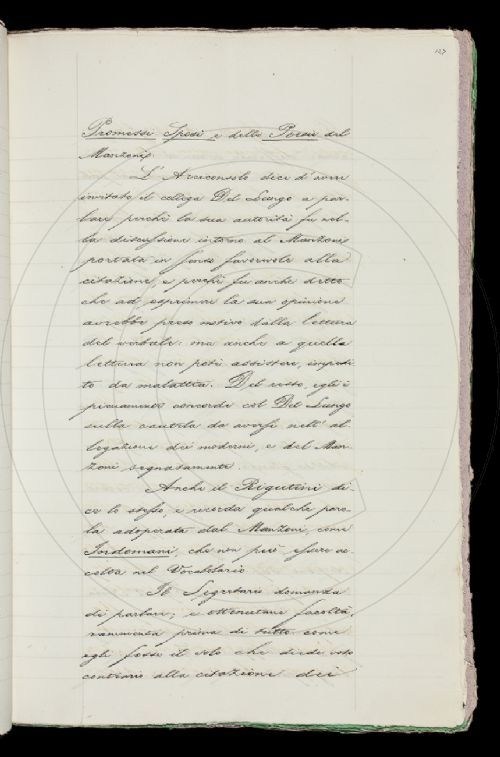 127
Promessi Sposi e delle Poesie del
Manzoni.
L'Arciconsolo dice d'avere
invitato il collega Del Lungo a par-
lare perchè la sua autorità fu nel-
la discussione intorno al Manzoni
portata in senso favorevole alla
citazione, e perchè fu anche detto
che ad esprimere la sua opinione
avrebbe preso motivo dalla lettura
del verbale: ma anche a quella
lettura non potè assistere, impedi-
to da malattia. Del resto, egli è
pienamente concorde col Del Lungo
sulla cautela da aversi nell'al-
legazione dei moderni, e del Man-
zoni segnatamente.
Anche il Rigutini di-
ce lo stesso, e ricorda qualche paro-
la adoperata dal Manzoni, come
Tordemani, che non può essere ac-
colta nel Vocabolario.
Il Segretario domanda
di parlare; e ottenutane facoltà,
rammenta prima di tutto come
egli fosse il solo che diede voto
contrario alla citazione dei